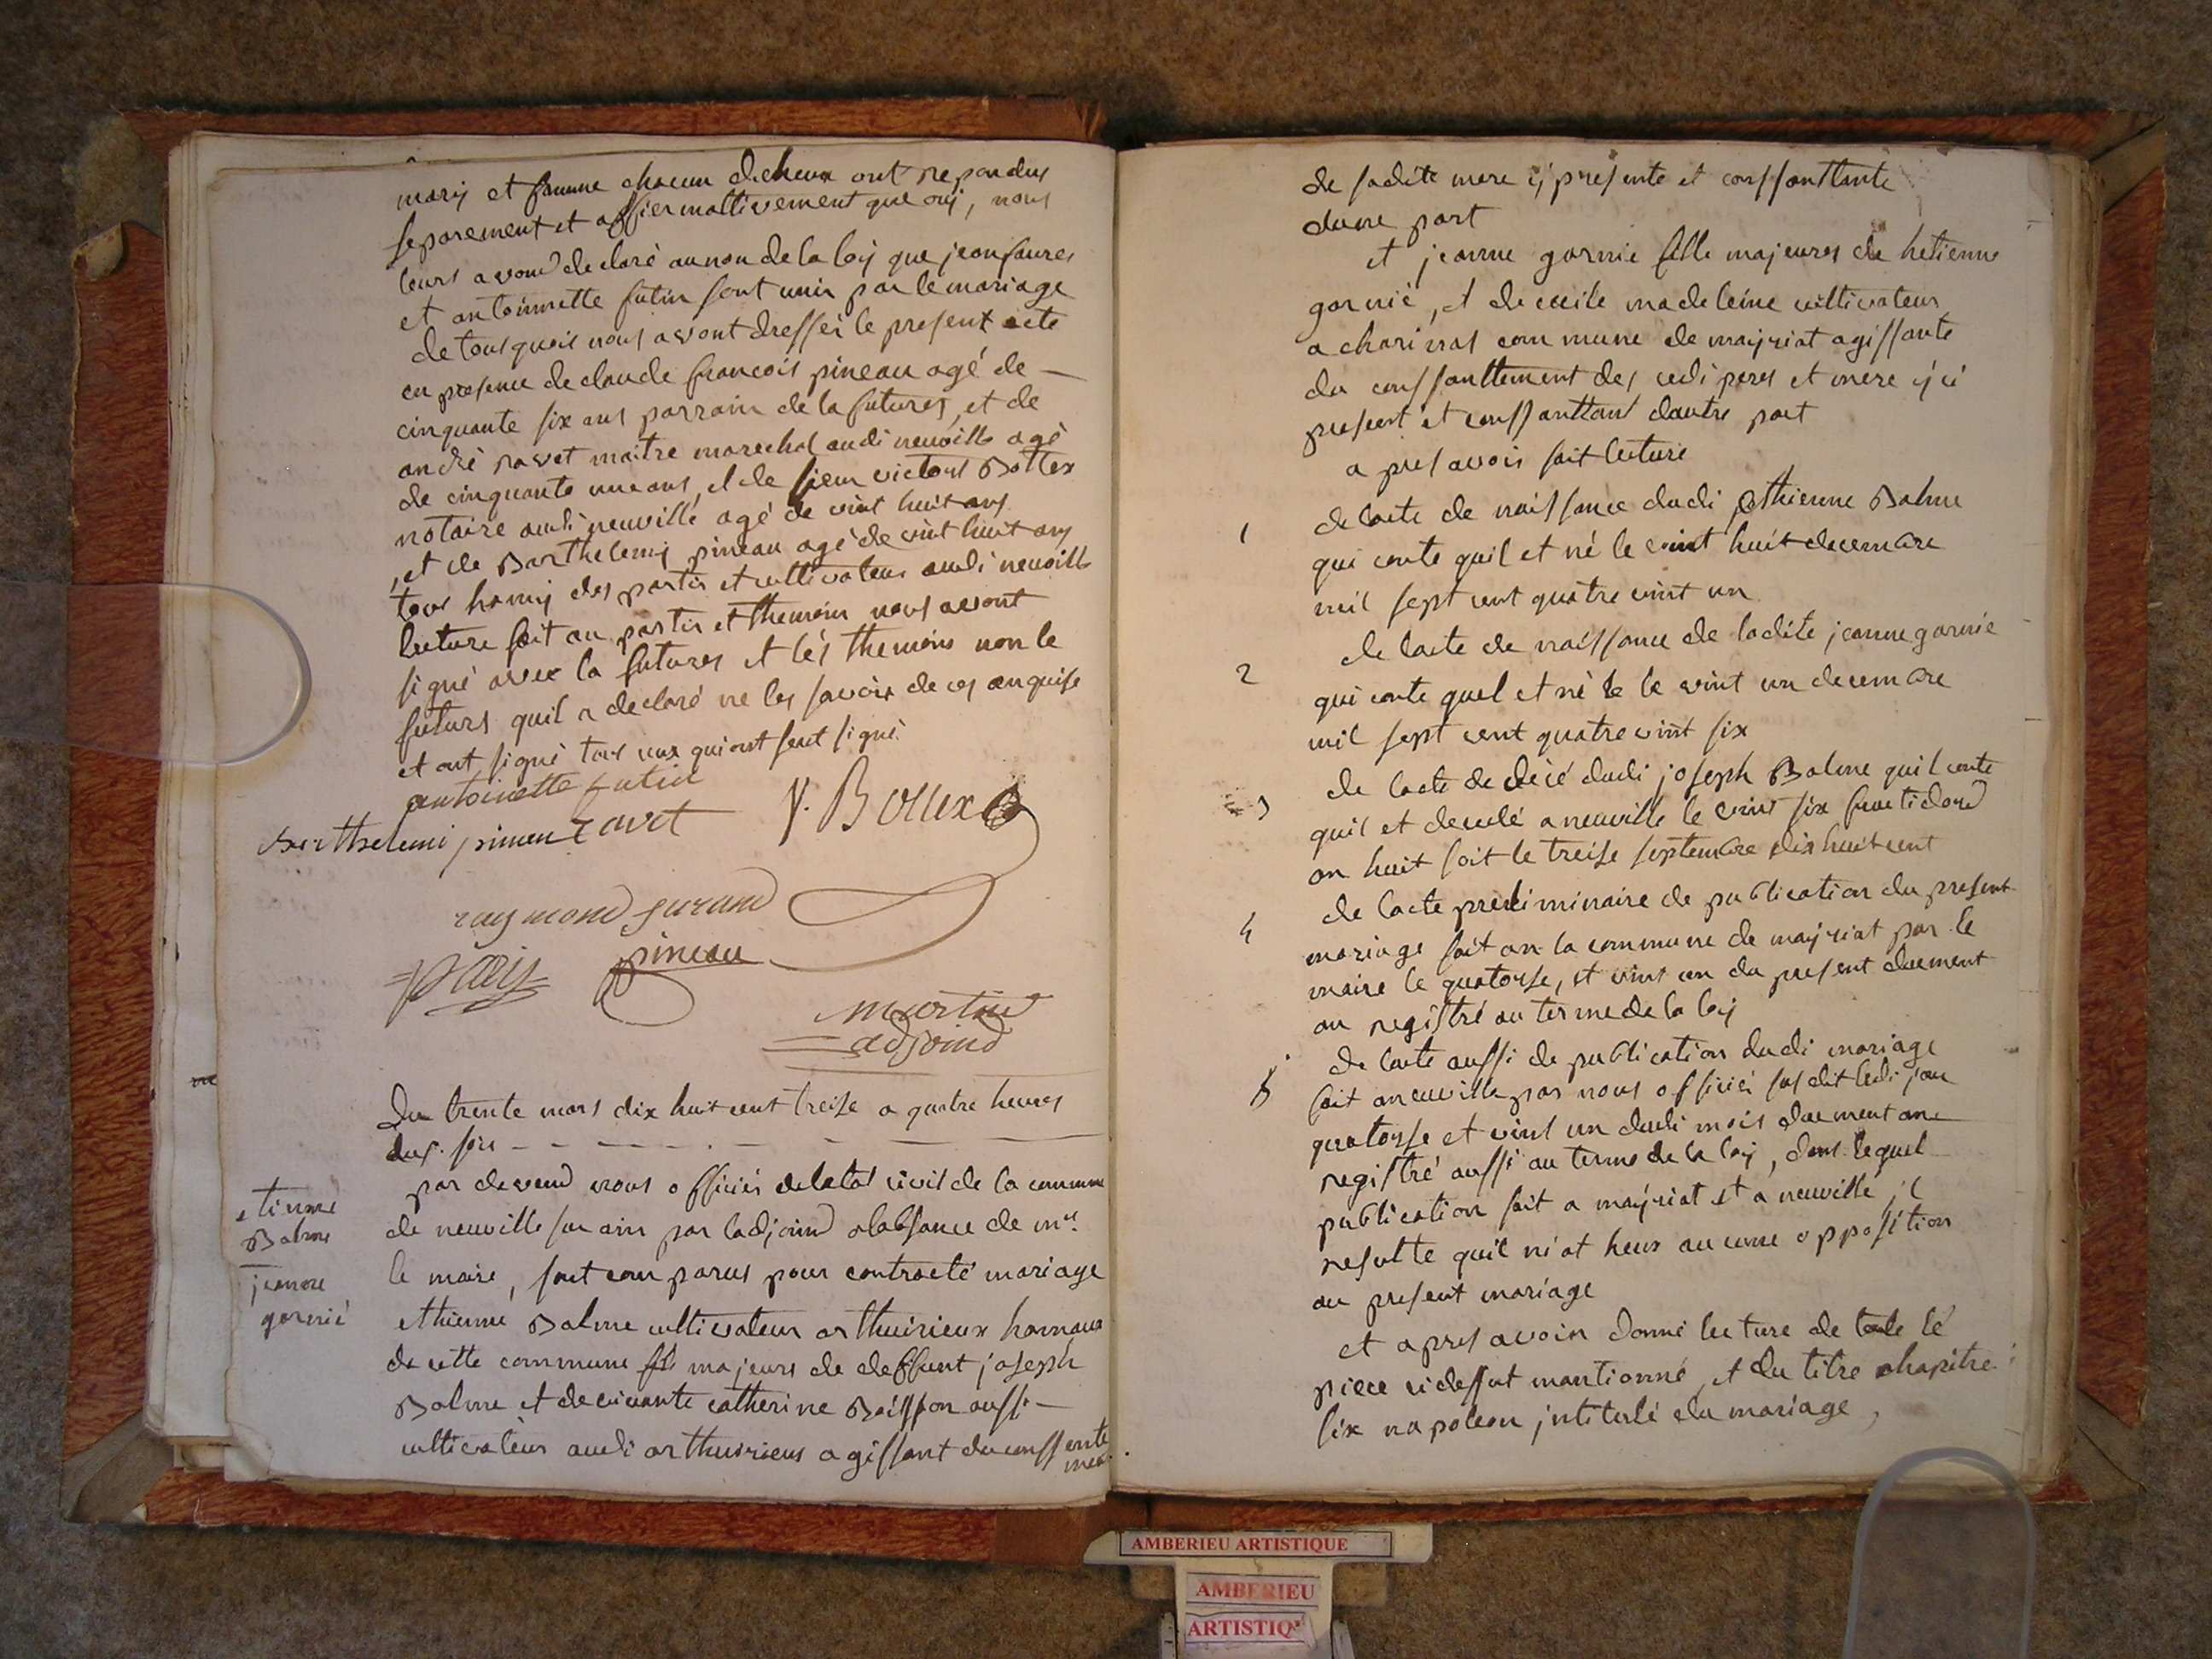 mary et famme chacun decheux ont repondus
separement et affiermattivement que ouy, nous
leurs avond declaré au non de la loy que jean faures
et antoinnette futin sont unis par le mariage
de tous quois nous avont dresser le present acte
en presence de claude francois pineau agé de –
cinquante six ans parrain de la futures, et de
andré ravet maitre marechal audi neuville agé
de cinquante une ans, et de sieur victoris Bottex
notaire audi neuville agé de vint huit ans
, et de Barthelemy pineau agé de vint huit ans
tous hamis des partis et cultivateur audi neuville
lecture fait au partis et themoin nous avont
signé avec la futures et les themoins non le
futurs quil a declaré ne les savoir de ces anquise
et ont signé tous ceux qui ont seut signé
antoinette futin
Barthelemi pineau ravet V. Bottex
raymond
pineau
martin
adjoind
Du trente mars dix huit cent treise a quatre heures
dus. soir
par devend nous officier deletat civil de la commune
de neuville sur ain par ladjoind alabsance de mr
le maire, sont comparus pour contracté mariage
etienne
Balme
jeanne
garnié
ethienne Balme cultivateur a thuirieux hamaux
de cette commune fils majeurs de deffunt joseph
Balme et de vivante catherine Boisson aussi –
cultivateur audi a thuirieux agissant du conssente
ment
de sadite mere cy presente et conssanttante
dune part
et jeanne garnie fille majeures de hetienne
garnié, et de cecile madeleine cultivateur
a charinas commune de mayriat agissante
du conssanttement des cedi peres et mere cy ci
present et conssanttant dautre part
a pres avoir fait lecture
1 de lacte de naissance dudi ethienne Balme
qui conte quil et né le vint huit decembre
mil sept cent quatre vint un
2 de lacte de naissance de ladite jeanne garnie
qui conte quel et né le le vint un decembre
mil sept cent quatre vint six
3 de lacte de décé dudi joseph Balme quil conte
quil et decedé a neuville le vint six fructidord
an huit soit le treise septembre dix huit cent
4 de lacte preliminaire de publication du present
mariage fait an la commune de mayriat par le
maire le quatorse, et vint un du present duement
an registré au terme de la loy
5 de lacte aussi de publication dudi mariage
fait aneuville par nous officier susdit ledi jour
quatorse et vint un dudi mois duement an
registré aussi au terme de la loy, dont lequel
publication fait a mayriat et a neuville jl
resulte quil ni at heus aucune opposition
au present mariage
et apres avoir donné lecture de toute lé
piece cidessut mantionné, et du titre chapitre
six napoleon jntitulé du mariage,
AMBERIEU ARTISTIQUE
AMBERIEU
ARTISTIQ